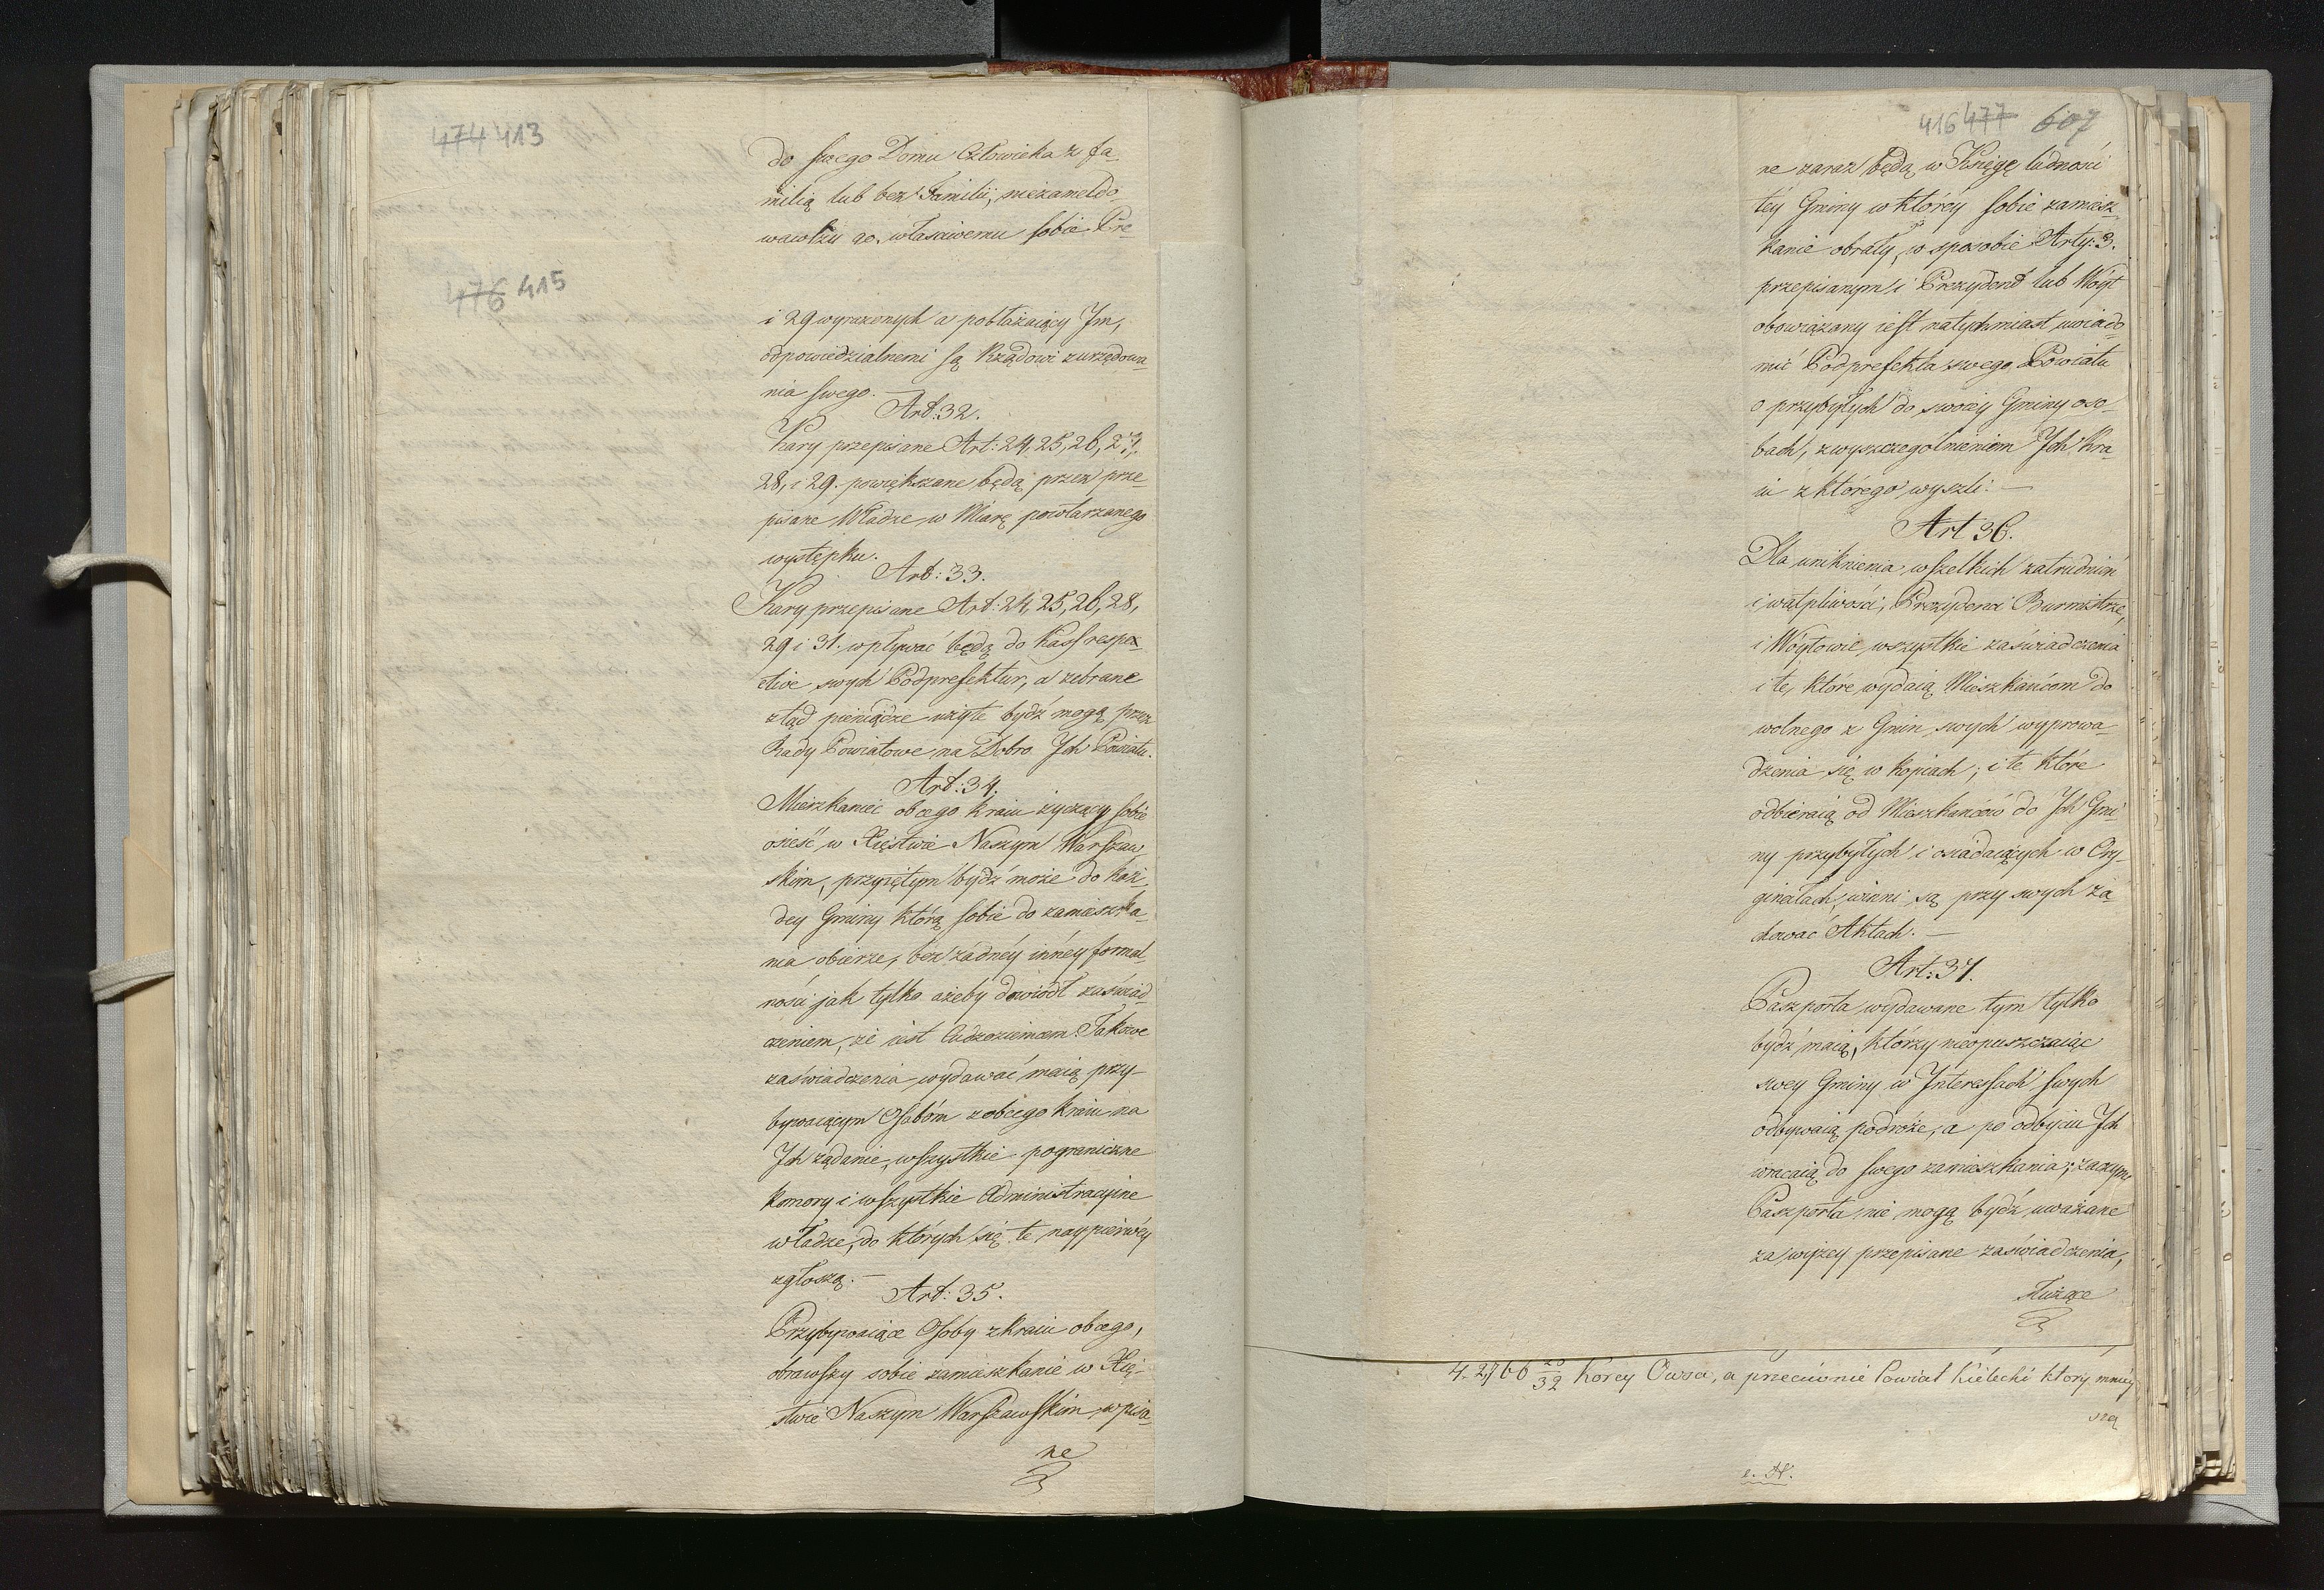 474 413
do swego Domu Człowieka z fa-
milią lub bez Familii, niezameldo-
wawszy go właściwemu sobie Pre-
476 415
i 29 wyrazonych a pobłażaiący Jm,
odpowiedzialnemi są Rządowi z urzędowa-
nia swego. —
Art: 32.
Kary przepisane Art: 24, 25, 26, 27,
28, i 29. powiększane będą przez prze-
pisane Władze w Miarę powtarzanego
występku.
Art: 33.
Kary przepisane Art: 24, 25, 26, 28,
29 i 31. wpływać będą do Kass respe-
ctive swych Podprefektur, a zebrane
ztąd pieniądze użyte bydź mogą przez
Rady Powiatowe na Dobro Jch Powiatu.
Art: 34.
Mieszkaniec obcego kraiu życzący sobie
osieść w Xięstwie Naszym Warszaw-
skim, przyiętym bydź może do każ-
dey Gminy którą sobie do zamieszka-
nia obierze, bez żadnéy innéy formal-
ności jak tylko ażeby dowiódł zaświad-
czeniem, że iest Cudzoziemcem. Takowe
zaświadczenia wydawać maią przy-
bywaiącym Osobóm z obcego kraiu na
Jch żądanie, wszystkie pograniczne
komory i wszystkie Administracyine
władze, do których się te naypierwéy
zgłoszą. —
Art: 35.
Przybywaiące Osoby z kraiu obcego,
obrawszy sobie zamieszkanie w Xię-
stwie Naszym Warszawskim, wpisa-
ne
416 477 607
ne zaraz będą w Księgę ludności
téy Gminy w którey sobie zamiesz-
kanie obrały, w sposobie Arty: 3.
przepisanym i Prezydent lub Wóyt
obowiązany iest natychmiast uwiado-
mić Podprefekta swego Powiatu
o przybyłych do swoiéy Gminy oso-
bach, z wyszczególnieniem Jch Kra-
iu z którego wyszli. —
Art 36.
Dla uniknienia wszelkich zatrudnień
i wątpliwości, Prezydenci Burmistrze,
i Wóytowie wszystkie zaświadczenia
i te, które wydaią Mieszkańcom do
wolnego z Gmin swych wyprowa-
dzenia się w kopiach; i te które
odbieraią od Mieszkańców do Jch Gmi-
ny przybyłych i osiadaiących w Ory-
ginałach, winni są przy swych za-
chować Aktach. —
Art: 37.
Paszporta wydawane tym tylko
bydź maią, którzy nieopuszczaiąc
swey Gminy w Interessach swych
odbywaią podróże, a po odbyciu Jch
wracaią do swego zamieszkania; zaczym
Paszporta nie mogą bydź uważane
za wyżey przepisane zaświadczenia,
służące
32 Korcy Owsa, a przeciwnie Powiat Kielecki który mniéy